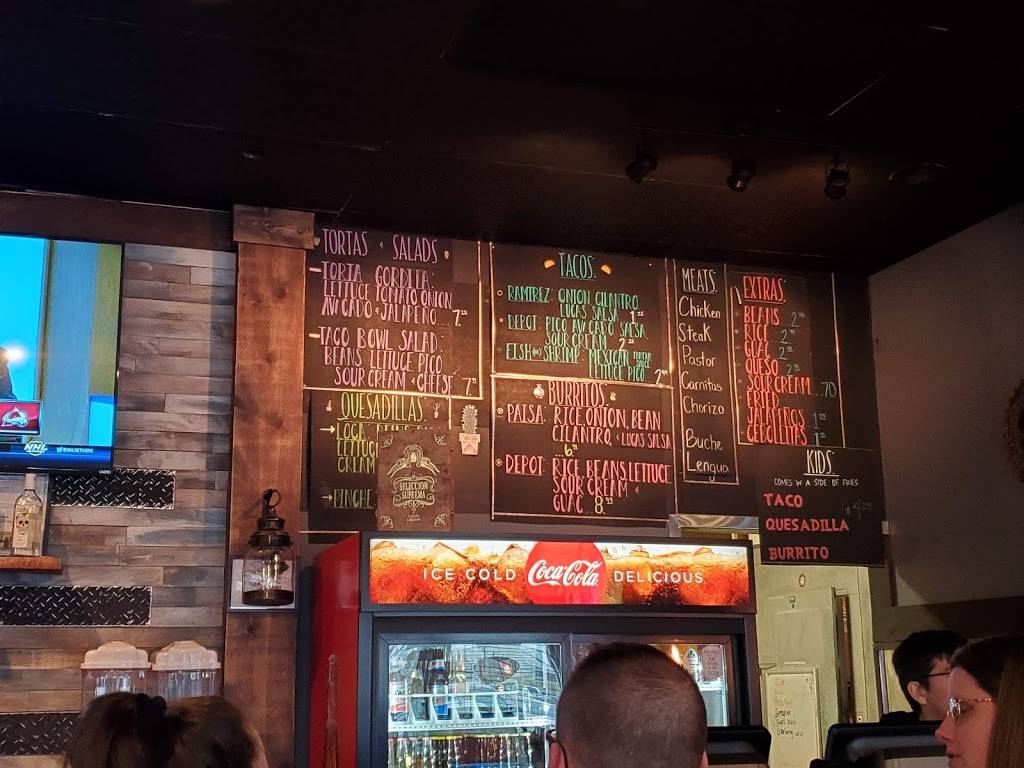 TORTAS & SALADS
TORTA GORDITA:
LETTUCE TOMATO ONION
AVOCADO & JALAPEÑO... 7.
TACO BOWL SALAD
BEANS LETTUCE PICO
SOUR CREAM & CHEESE 7.
QUESADILLAS
LOCA
LETTUCE
CREAM
PINCHE
SELECCION
SUPREMA
TACOS:
RAMIREZ: ONION CILANTRO
LUCAS SALSA
DEPOT: PICO AVOCADO SALSA
SOUR CREAM
FISH OR SHRIMP: MEXICAN TARTAR
SAUCE
LETTUCE PICO
BURRITOS
PAISA: RICE, ONION, BEAN
CILANTRO, & LUCAS SALSA
6.
DEPOT: RICE BEANS LETTUCE
SOUR CREAM &
GUAC... 8.
MEATS:
Chicken
Steak
Pastor
Carnitas
Chorizo
Buche
Lengua
EXTRAS:
BEANS
RICE
GUAC
QUESO
SOUR CREAM .70
FRIED
JALAPEÑOS
CEBOLLITAS
KIDS:
COMES W A SIDE OF FRIES
TACO
QUESADILLA
BURRITO
ICE COLD Coca-Cola DELICIOUS
NHL